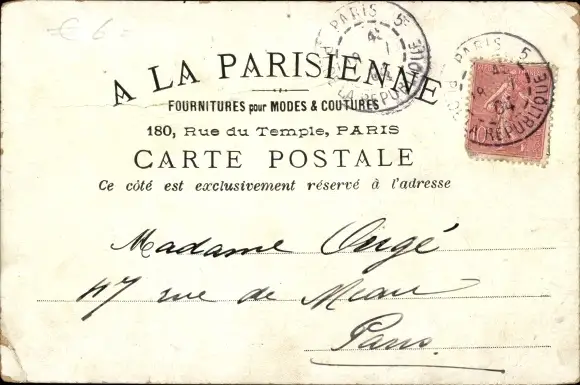 € 6=
A LA PARISIENNE
FOURNITURES pour MODES & COUTURES
180, Rue du Temple, PARIS
CARTE POSTALE
Ce côté est exclusivement réservé à l'adresse
PARIS 5E
LA RÉPUBLIQUE
PARIS 5
LA RÉPUBLIQUE
Madame Ongé
47 rue de
Paris